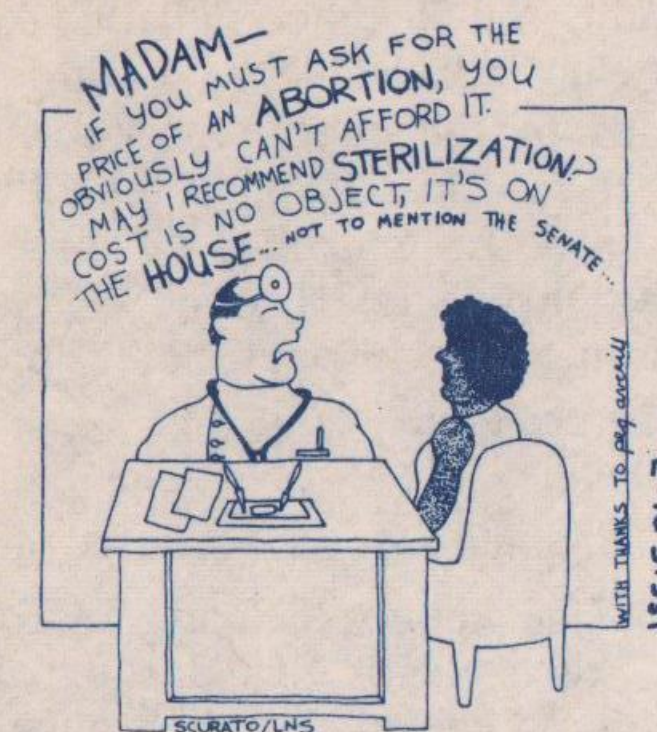 MADAM—
IF YOU MUST ASK FOR THE
PRICE OF AN ABORTION, YOU
OBVIOUSLY CAN'T AFFORD IT.
MAY I RECOMMEND STERILIZATION?
COST IS NO OBJECT, IT'S ON
THE HOUSE... NOT TO MENTION THE SENATE...
WITH THANKS TO peg averill
SCURATO/LNS